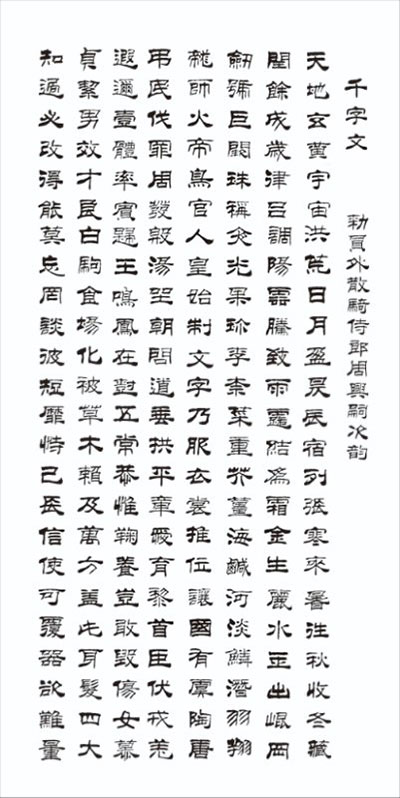 千字文
勑員外散騎侍郎周興嗣次韵
天地玄黃宇宙洪荒日月盈昃辰宿列張寒來暑往秋收冬藏
閏餘成歲律呂調陽雲騰致雨露結爲霜金生麗水玉出崐岡
劒號巨闕珠稱夜光果珍李柰菜重芥薑海鹹河淡鱗潛羽翔
龍師火帝鳥官人皇始制文字乃服衣裳推位讓國有虞陶唐
弔民伐罪周發殷湯坐朝問道垂拱平章愛育黎首臣伏戎羌
遐邇壹體率賓歸王鳴鳳在尌五常恭惟鞠養豈敢毀傷女慕
貞絜男效才良白駒食場化被草木賴及萬方蓋此身髮四大
知過必改得能莫忘罔談彼短靡恃己長信使可覆器欲難量